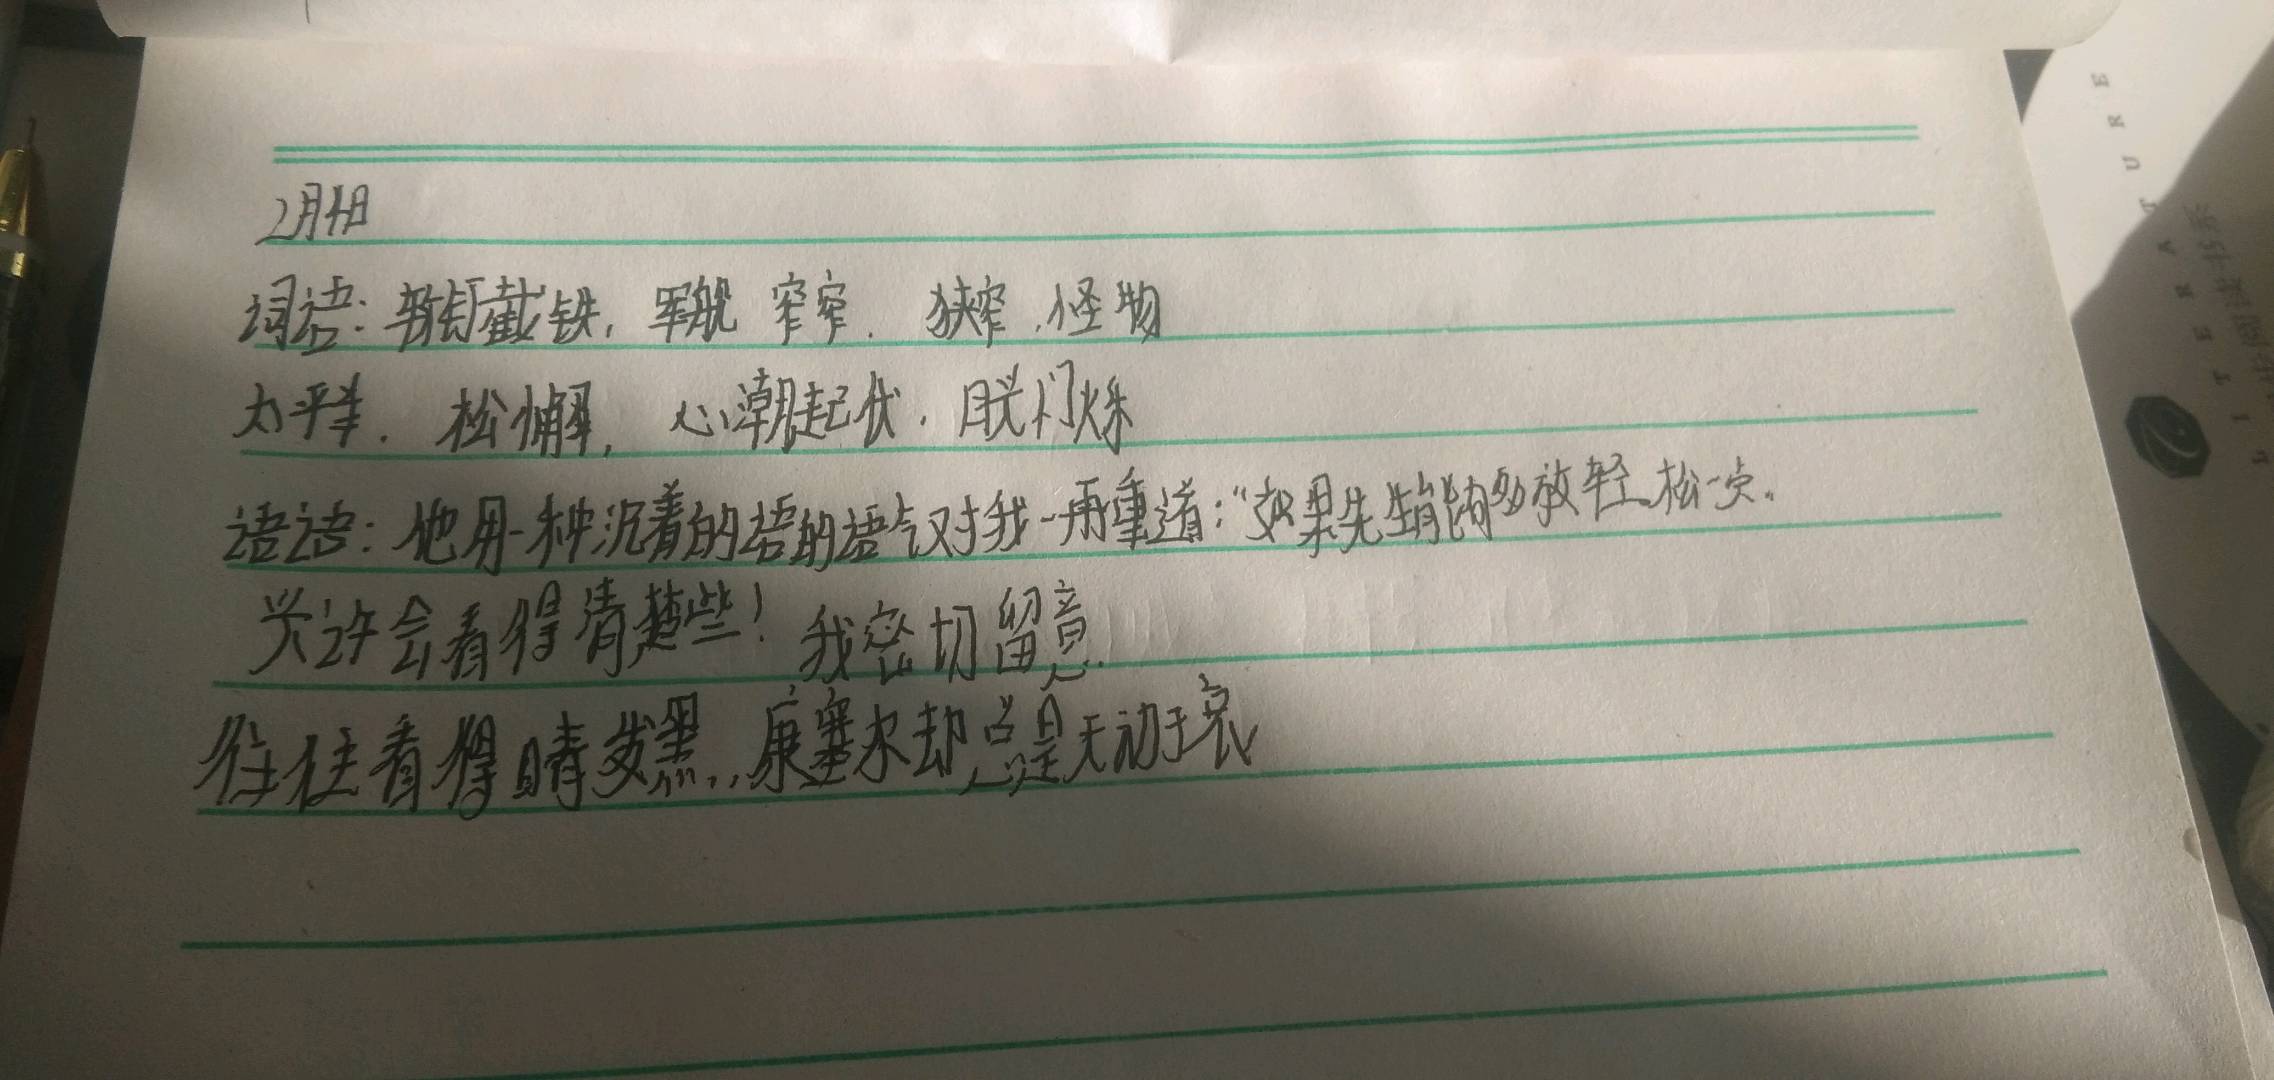 2月10日
词语：斩钉截铁，军舰 窄窄．狭窄．怪物
太平洋．松懈，心潮起伏．
语语：他用一种沉着的语的语气对我一再重道："如果先生能够放轻松一点。
兴许会看得清楚些！我密切留意
往往看得睛发黑，康塞尔却总是无动于衷
LITERATURE